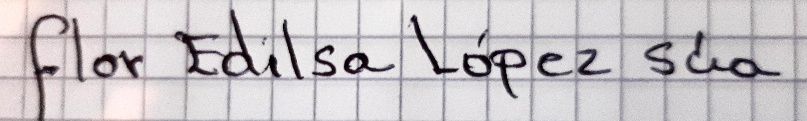 Flor Edilsa López Súa